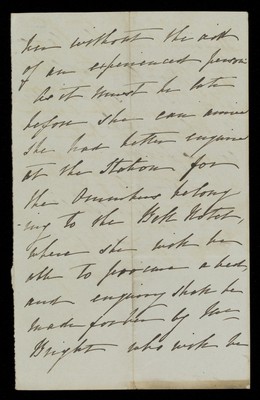 her without the aid
of an experienced person
As it must be late
before she can arrive
she had better enquire
at the Station for
the Omnibus belong
-ing to the Bell Hotel,
where she will be
able to procure a bed,
and enquiry shall be
made for her by Mr
Bright who will be